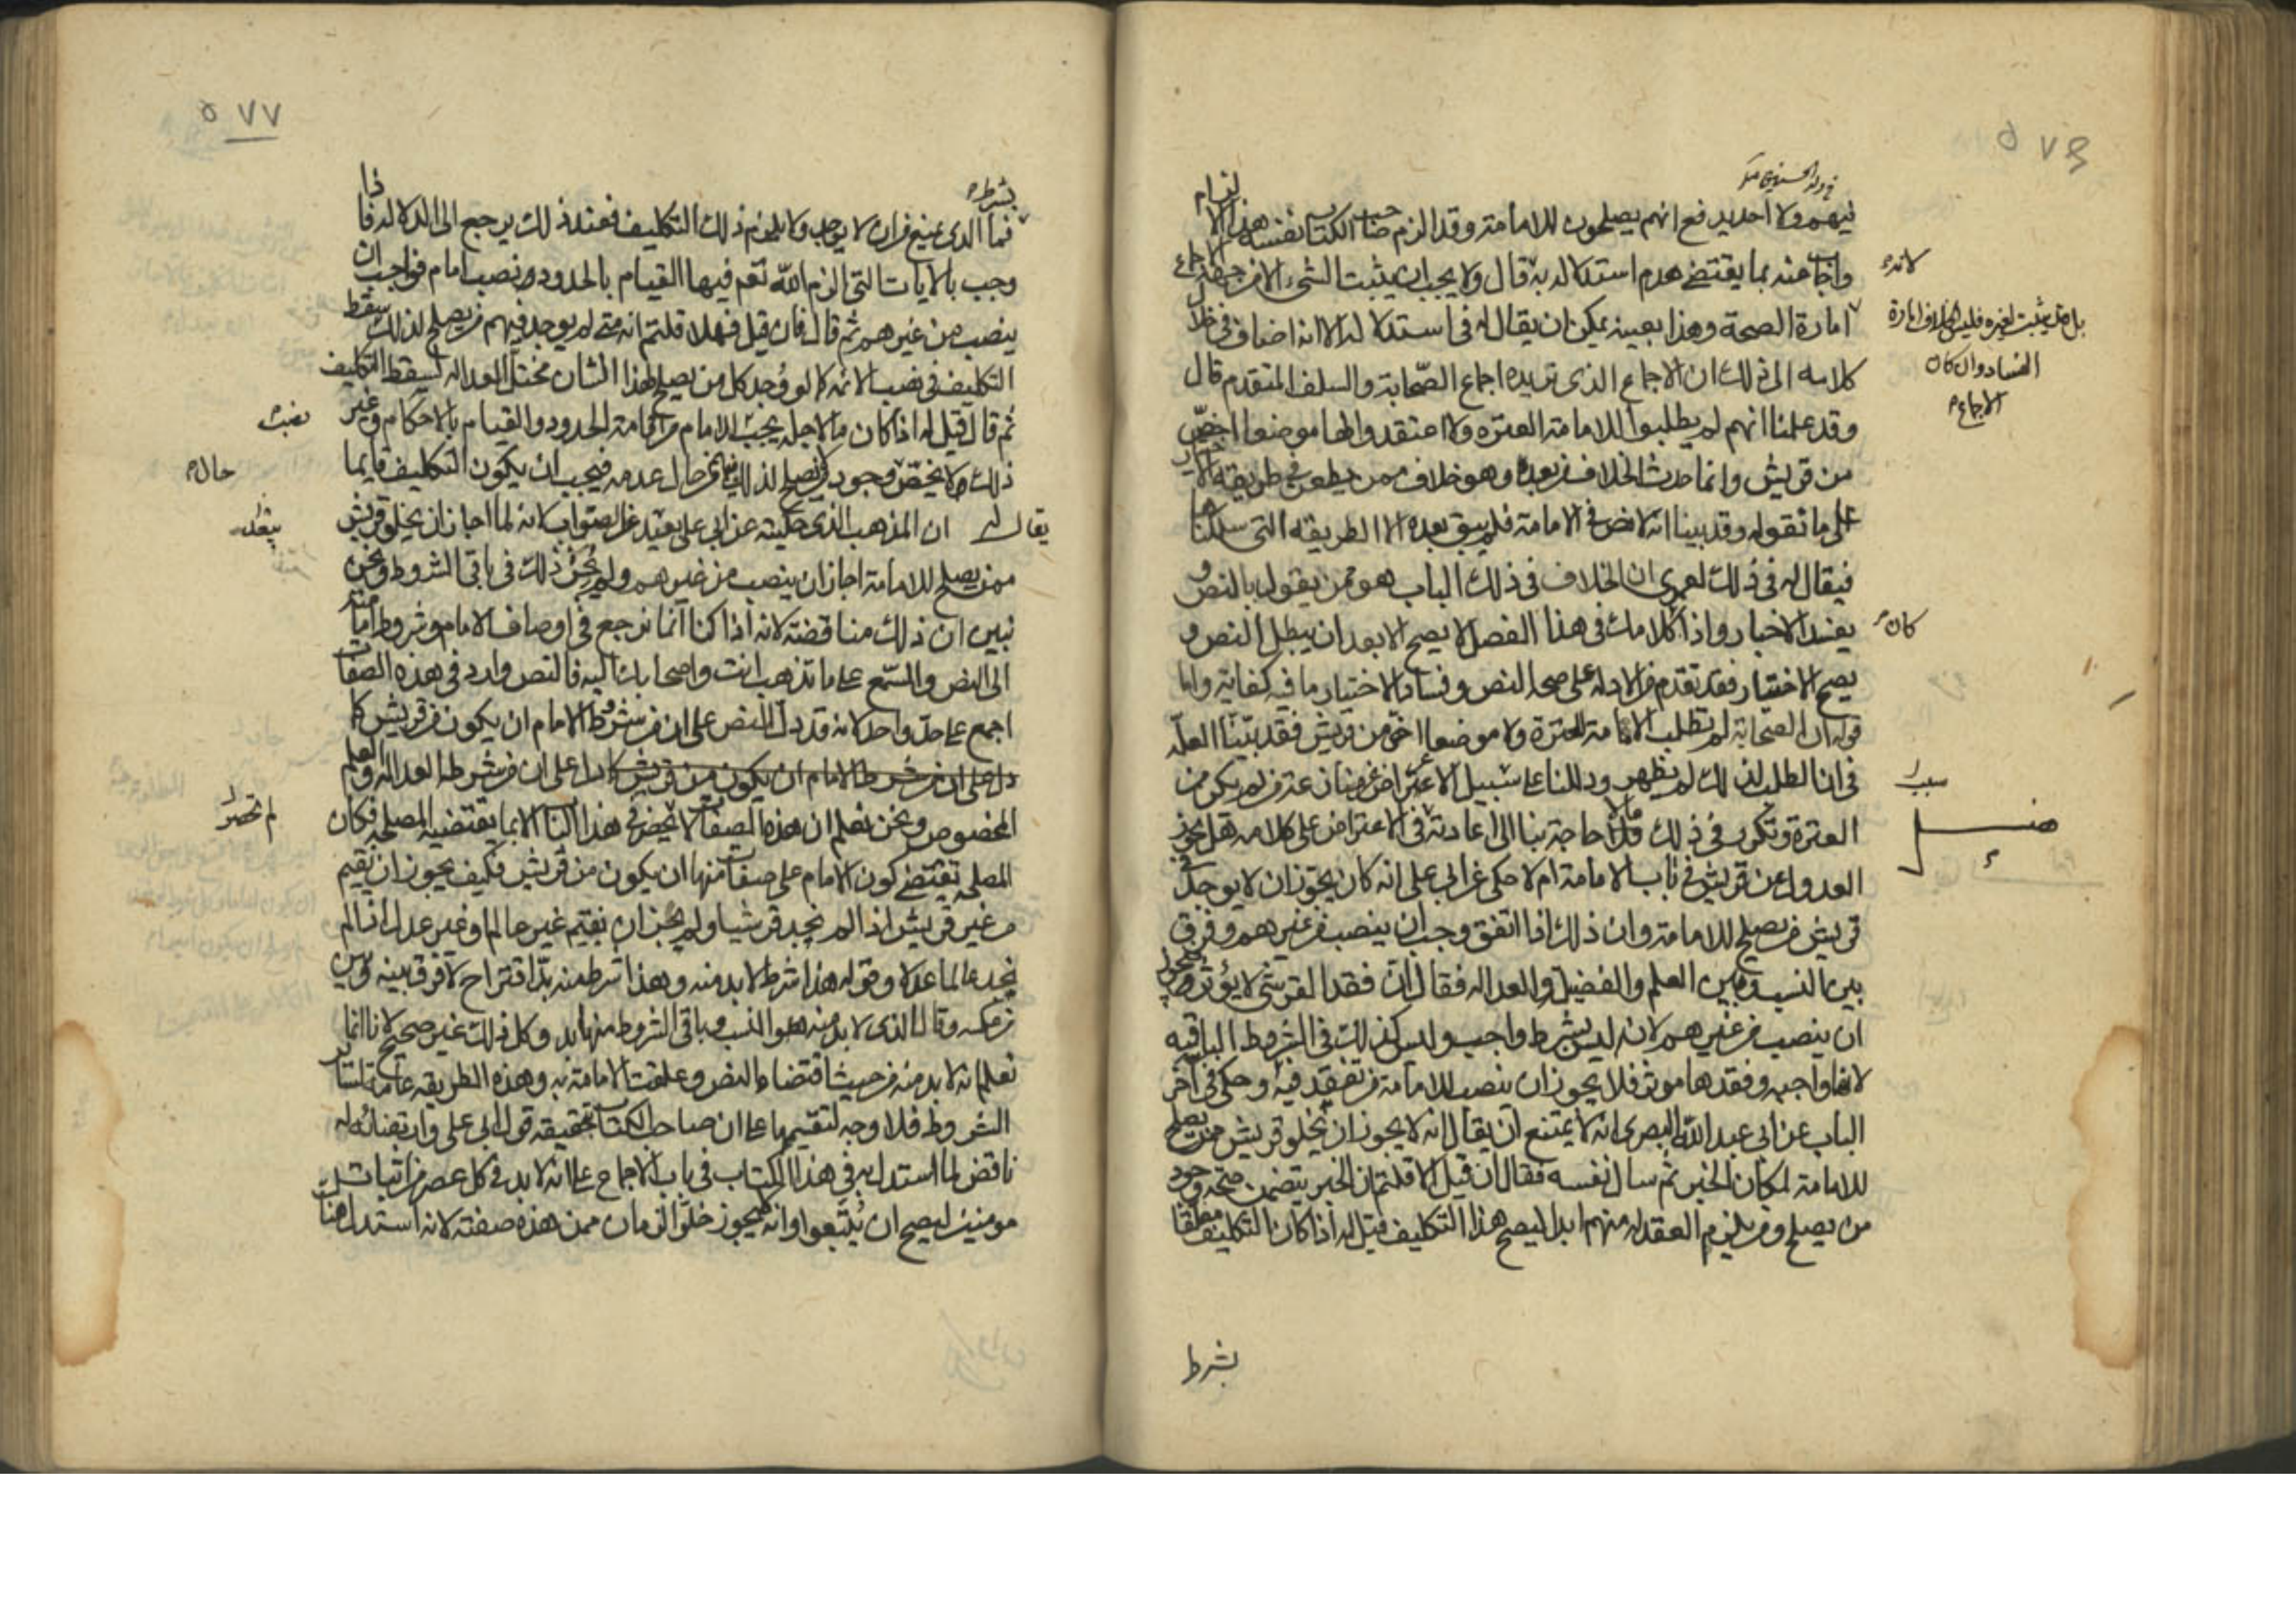 ٥٧٦
فيهم ولا احد يدفع انهم يصلحون للامامة وقد الزم صاحب الكتاب نفسه هذا الالزام
واجاب عنه بما يقتضي هدم استدلاله به قال ولا يجب ان يثبت الشيء الا من جهة الاجماع
امارة الصحة وهذا بعينه يمكن ان يقال له في استدلاله الا انه اضاف في خلال
كلامه الى ذلك ان الاجماع الذي نريده اجماع الصحابة والسلف المتقدم قال
وقد علمنا انهم لم يطلبوا للامامة العترة ولا اعتقدوا لها موضعا اخص
من قريش وانما حدث الخلاف من بعده وهو خلاف ممن يطعن في طريقة الاخبار
على ما نقوله وقد بينا انه لا نص في الامامة فلم يبق بعده الا الطريقة التي سلكناها
فيقال له في ذلك لعمري ان الخلاف في ذلك الباب هو ممن يقول بالنص و
يفسد الاختيار واذا كلامك في هذا الفصل لا يصح الا بعد ان يبطل النص و
يصح الاختيار فقد تقدم من الادلة على صحة النص وفساد الاختيار ما فيه كفاية واما
قوله ان الصحابة لم تطلب الامامة للعترة ولا موضعا اخص من قريش فقد بينا العلة
في ان الطلب لذلك لم يظهر ودللنا على سبيل الاعتراض
العترة وتكرر في ذلك ما لا حاجة بنا الى اعادته في الاعتراض على كلامه هل يجوز
العدول عن قريش في باب الامامة ام لا حكى عن ابي علي انه كان يجوز ان لا يوجد في
قريش من يصلح للامامة وان ذلك اذا اتفق وجب ان ينصب من غيرهم وفرق
بين النسب وبين العلم والفضل والعدالة فقال ان فقد القرشي لا يؤثر
ان ينصب من غيرهم لانه ليس بشرط واجب وليس كذلك في الشروط الباقية
لانها واجبة وفقدها موثر فلا يجوز ان ينصب للامامة من تفقد فيه وحكى في آخر
الباب عن ابي عبد الله البصري انه لا يمتنع ان يقال انه لا يجوز ان تخلو قريش ممن يصلح
للامامة لمكان الخبر ثم سال نفسه فقال ان قيل الا قلتم ان الخبر يتضمن صحة وجود
من يصلح ومن يلزم العقد له منهم ابدا ليصح هذا التكليف قيل له اذا كان التكليف معلقا
بشرط
لانه
بل متى ثبت لغيره فليس الخلاف امارة
الفساد وان كان
الاجماع
كان
سبب
فصل
٥٧٧
بشرط
فما الذي يمنع من ان لا يوجد ولا يلزم ذلك التكليف فعند ذلك يرجع الى الدلالة فاذا
وجب بالايات التي الزم الله تعم فيها القيام بالحدود ونصب امام فواجب ان
ينصب من غيرهم ثم قال فان قيل فهلا قلتم انه متى لم يوجد فيهم من يصلح لذلك سقط
التكليف في نصب الائمة كما لو وجد كل من يصلح لهذا الشان مختل العدالة لسقط التكليف
ثم قال قيل له اذا كان ما لاجله يجب الامام من اقامة الحدود والقيام بالاحكام وغير
ذلك لا يختص وجود من يصلح لذلك من حال عدمه فيجب ان يكون التكليف قايما
يقال له ان المذهب الذي حكيته عن ابي علي بعيد عن الصواب لانه لما اجاز ان يخلو قريش
ممن يصلح للامامة اجاز ان ينصب من غيرهم ولم يجز ذلك في باقي الشروط ونحن
نبين ان ذلك مناقضة لانه اذا كنا انما نرجع في اوصاف الامام وشروط امامته
الى النص والسمع على ما تذهب انت واصحابك اليه فالنص وارد في هذه الصفات
اجمع على حد واحد لانه قد دل النص على ان من شروط الامام ان يكون من قريش كما
دل على ان من شرط الامام ان يكون من قريش كما دل على ان من شرطه العدالة والعلم
المخصوص ونحن نعلم ان هذه الصفات لا تحصر في هذا الباب الا بما يقتضيه المصلحة فكان
المصلحة تقتضي كون الامام على صفات منها ان يكون من قريش فكيف يجوز ان يقيم
من غير قريش اذا لم نجد قرشيا ولم يجز ان يقيم غير عالم او غير عدل اذا لم
نجد عالما عدلا وقوله هذا شرط لا بد منه وهذا شرط منه بد اقتراح لا فرق بينه وبين
من عكسه وقال الذي لا بد منه هو النسب وباقي الشروط منها بد وكل ذلك غير صحيح لانا انما
نعلم انه لا بد منه من حيث اقتضاه النص وعلقت الامامة به وهذه الطريقة عامة لسائر
الشروط فلا وجه لتقسيمها على ان صاحب الكتاب بتحقيقه قول ابي علي وارتضائه له
ناقض لما استدل به في هذا الكتاب في باب الاجماع على انه لا بد في كل عصر من اثبات
مومنين ليصح ان يتبعوا وانه لا يجوز خلو الزمان ممن هذه صفته لانه استدل هناك
نصب
حال
لم تحصر